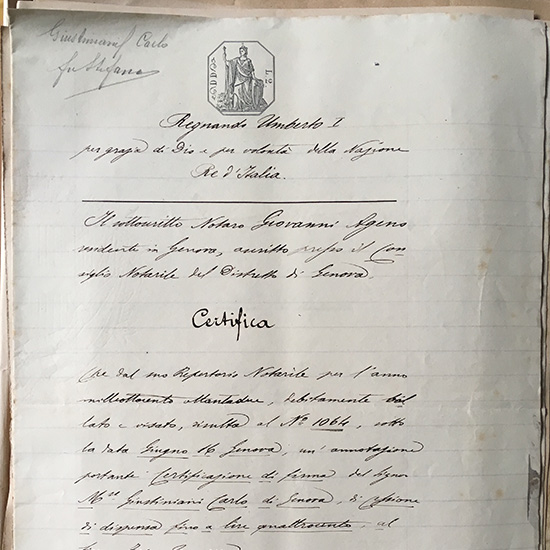 Giustiniani Carlo
fu Stefano
L. 2
Regnando Umberto I
per grazia di Dio e per volontà della Nazione
Re d'Italia.
Il sottoscritto Notaro Giovanni Ageno
residente in Genova, ascritto presso il Con
siglio Notarile del Distretto di Genova.
Certifica
Che dal suo Repertorio Notarile per l'anno
milleottocento ottantadue, debitamente bol
lato e vidato, risulta al N.º 1064, sotto
la data Giugno 16 Genova, un'annotazione
portante Certificazione di firma del Signor
M.se Giustiniani Carlo di Genova, di
di dispensa fino a lire quattrocento, al